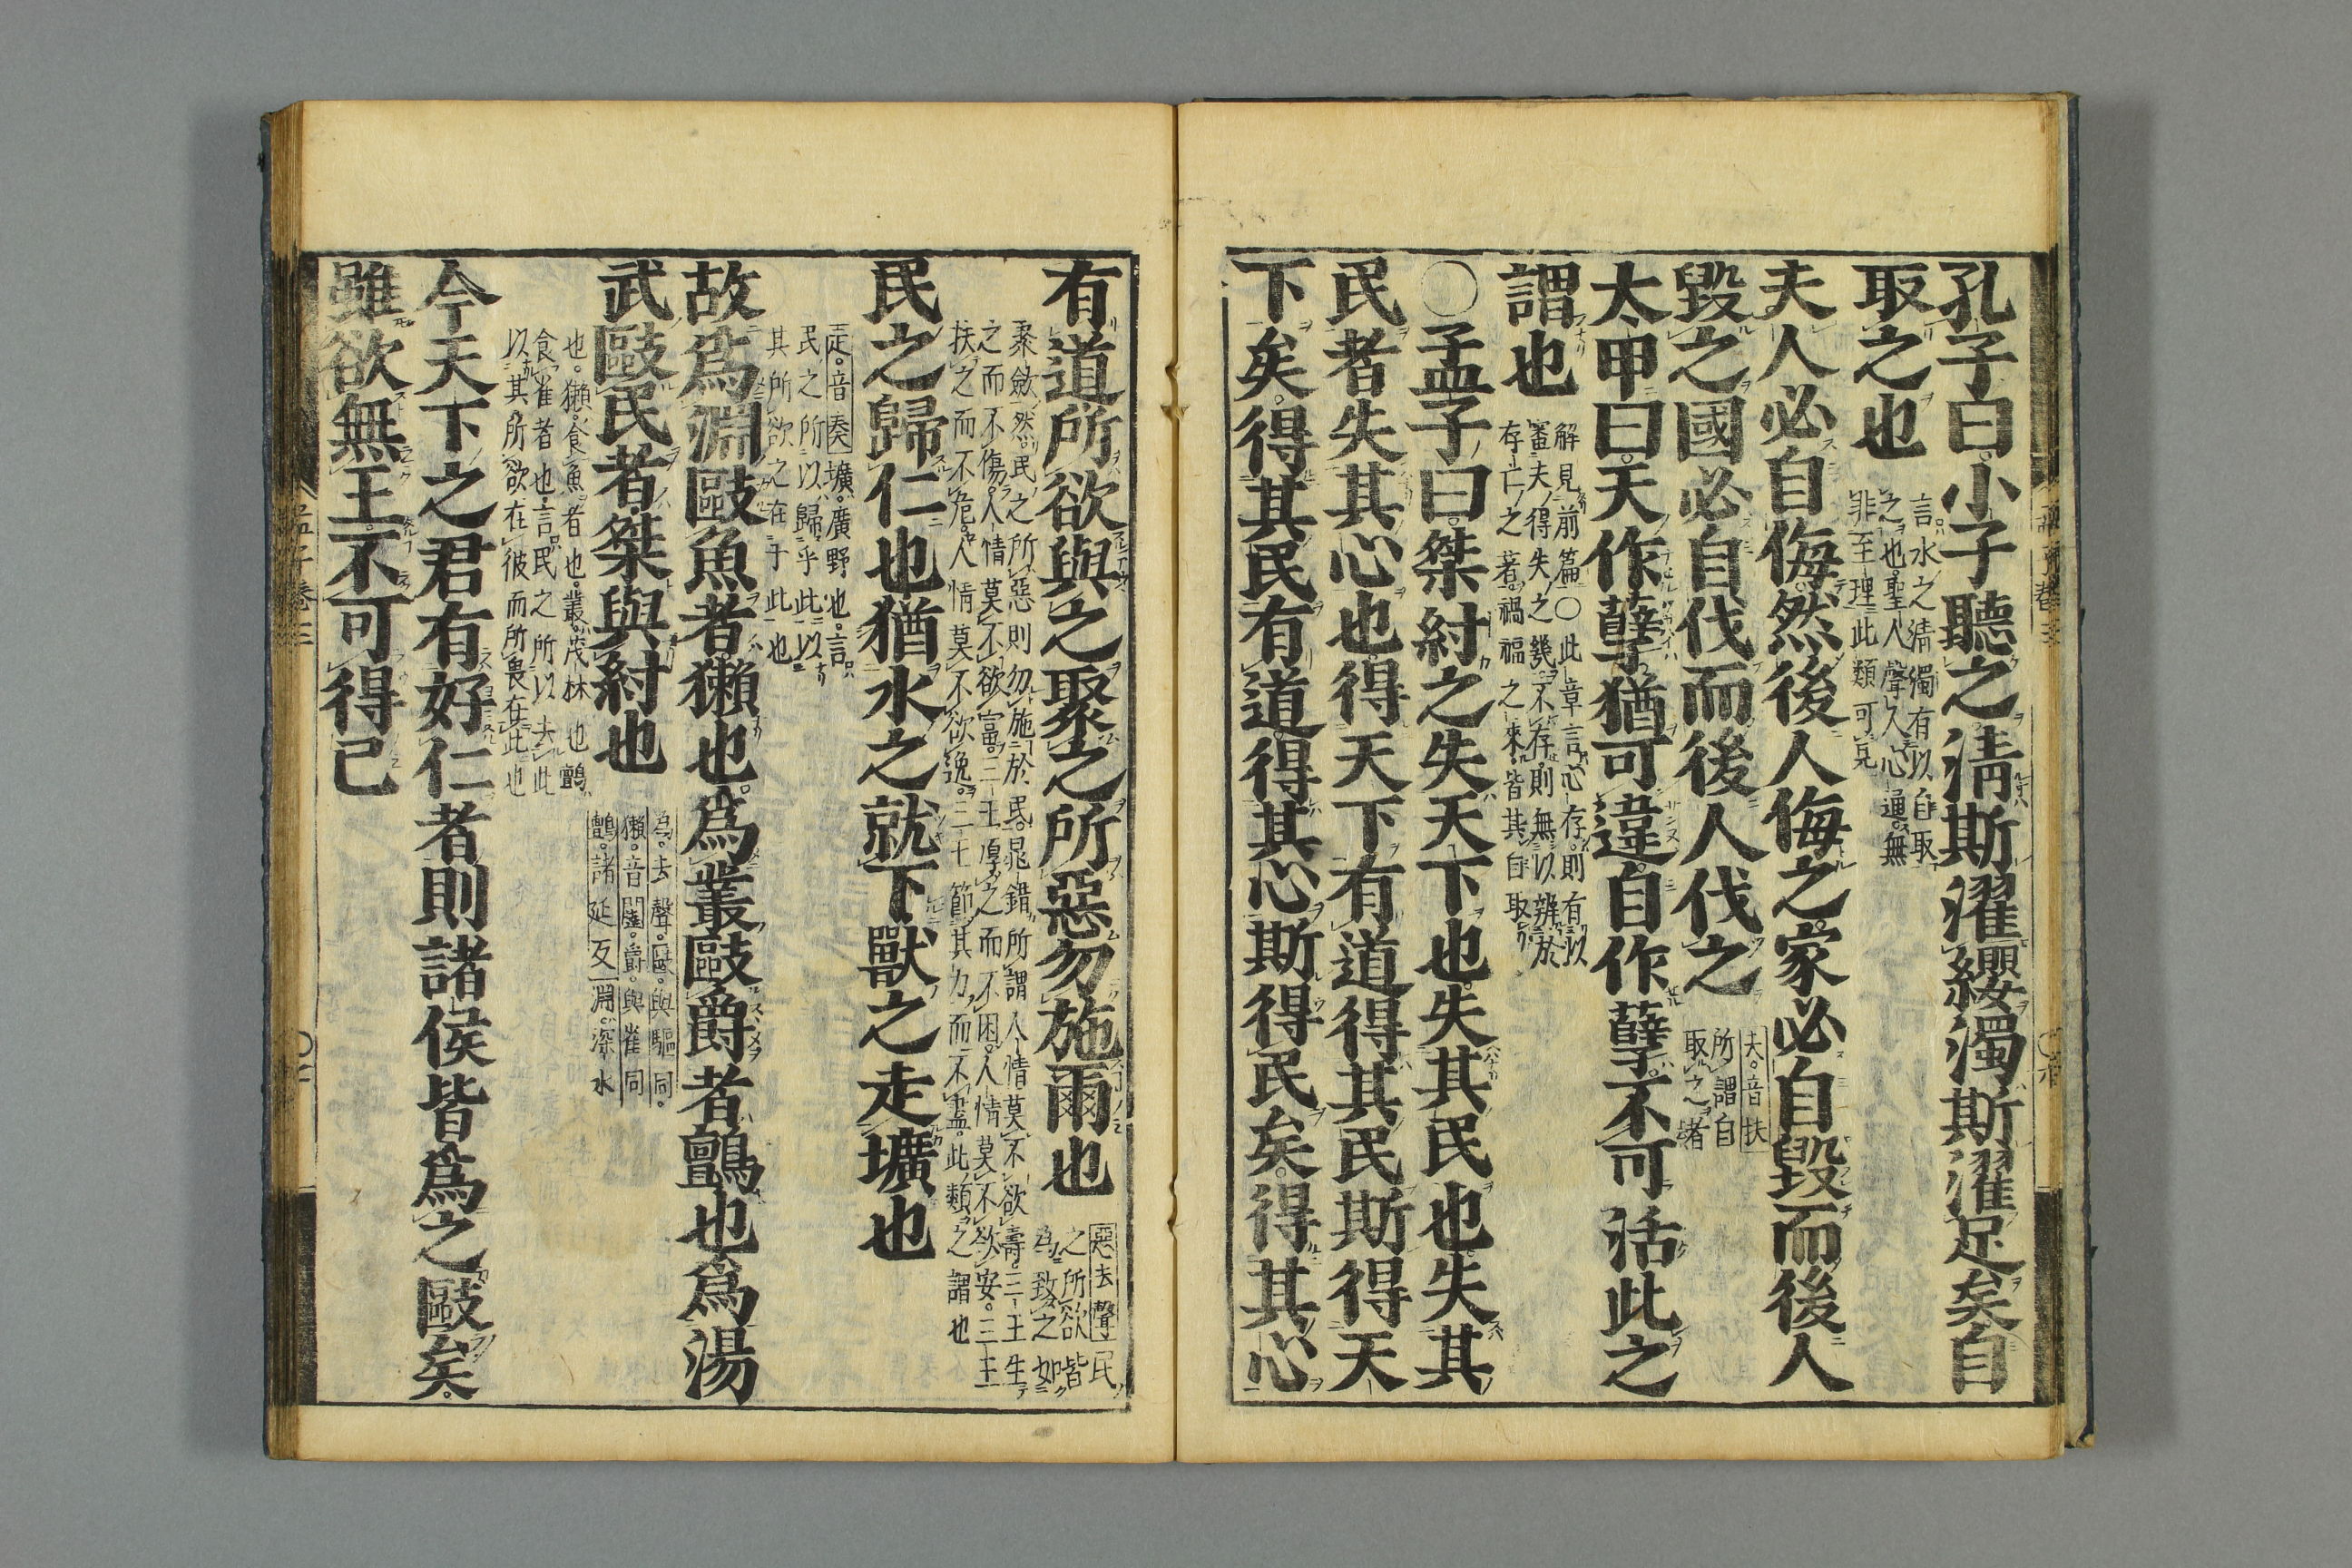 孔子曰小子聽之淸斯濯纓濁斯濯足矣自
取之也
言水之淸濁有以自取
之也聖人聲入心通無
非至理此類可見
夫人必自侮然後人侮之家必自毀而後人
毀之國必自伐而後人伐之
夫音扶
所謂自
取之者
太甲曰天作孽猶可違自作孽不可活此之
謂也
解見前篇○此章言心存則有以
審夫得失之幾不存則無以辨於
存亡之著禍福之來皆其自取
○孟子曰桀紂之失天下也失其民也失其
民者失其心也得天下有道得其民斯得天
下矣得其民有道得其心斯得民矣得其心
有道所欲與之聚之所惡勿施爾也
惡去聲民
之所欲皆
爲致之如
聚斂然民之所惡則勿施於民晁錯所謂人情莫不欲壽三王生
之而不傷人情莫不欲富三王厚之而不困人情莫不欲安三王
扶之而不危人情莫不欲逸三王節其力而不盡此類之謂也
民之歸仁也猶水之就下獸之走壙也
走音奏壙廣野也言
民之所以歸乎此以
其所欲之在于此也
故爲淵敺魚者獺也爲叢敺爵者鸇也爲湯
武敺民者桀與紂也
爲去聲敺與驅同
獺音闥爵與雀同
鸇諸延反淵深水
也獺食魚者也叢茂林也鸇
食雀者也言民之所以去此
以其所欲在彼而所畏在此也
今天下之君有好仁者則諸侯皆爲之敺矣
雖欲無王不可得已
孟子卷三